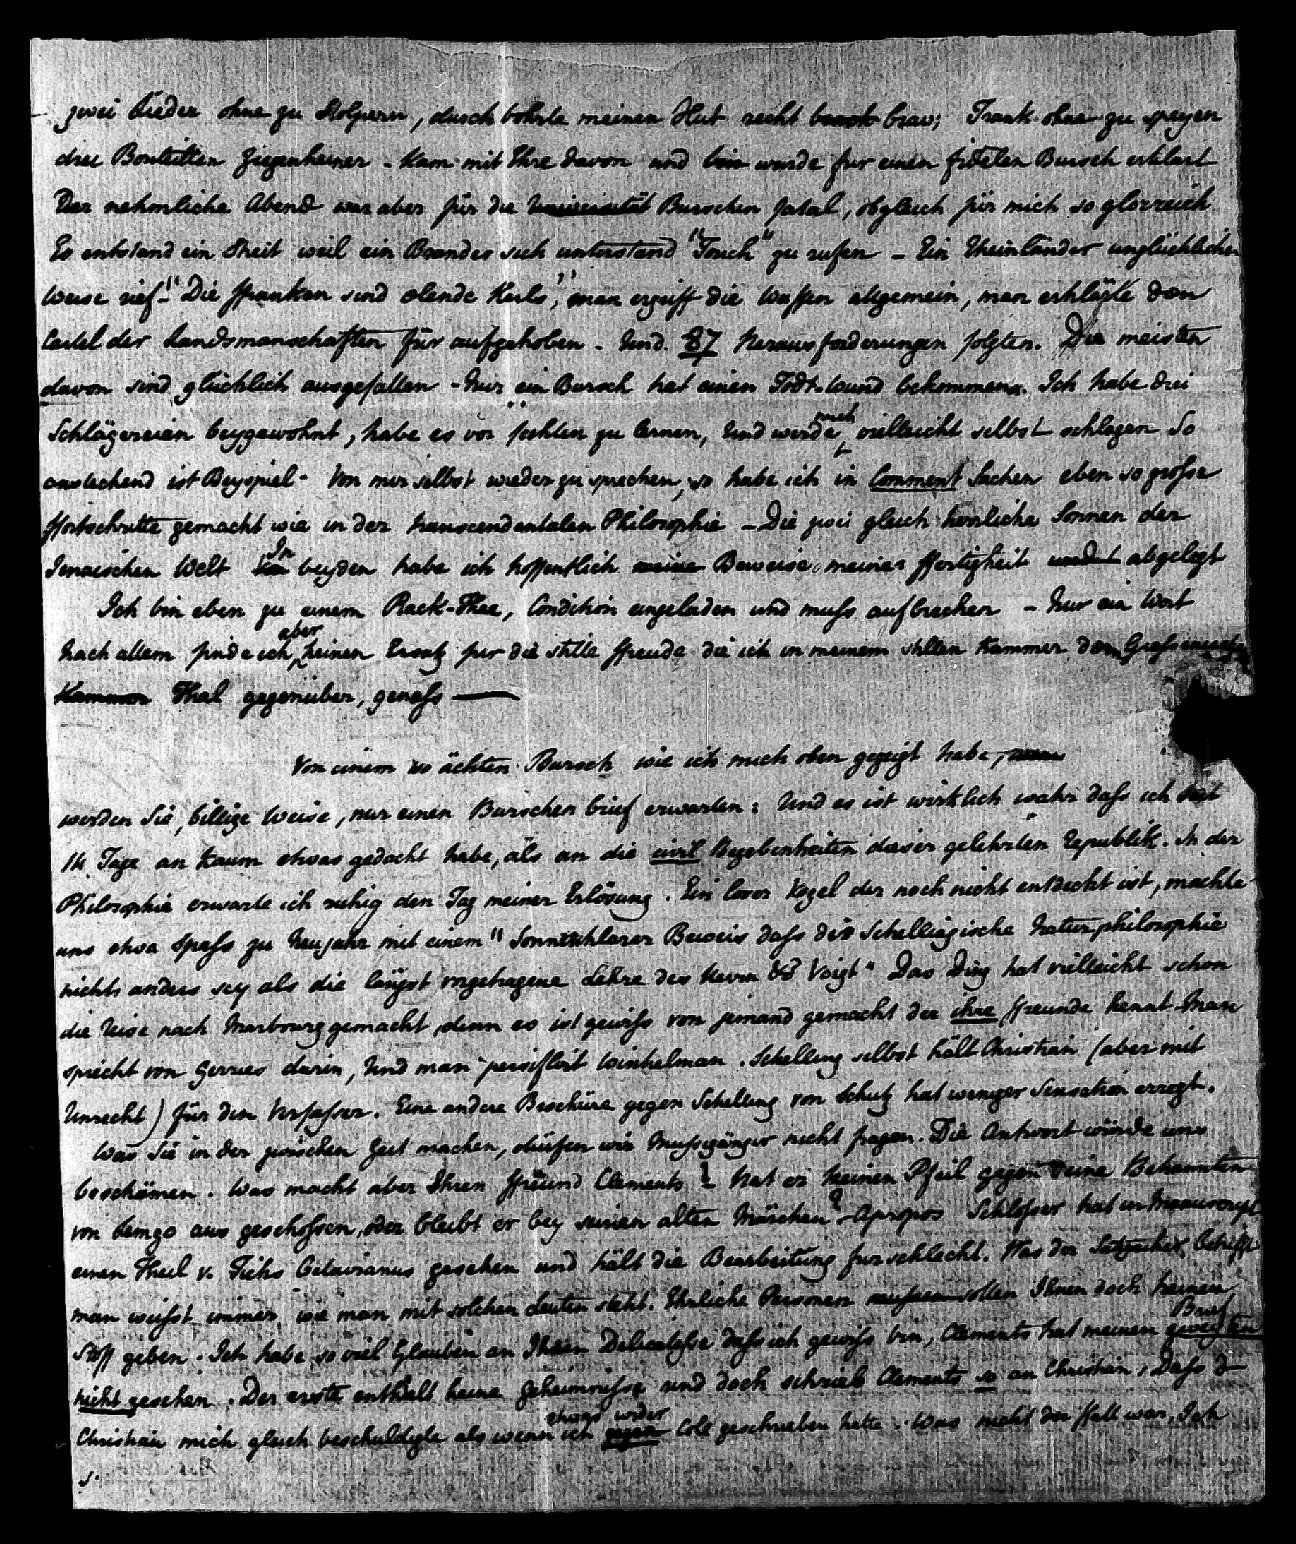 zwei Lieder ohne zu stolpern, durch bohrte meinen Hut recht brav; Trank ohne zu speyen
drei Bouteillen Ziegenheiner - Kam mit Ehre davon und wurde fur einen fidelen Bursch erklart
Der nehmliche Abend war aber für die Burschen fatal, obgleich für mich so glorreich
Es entstand ein Streit weil ein Brander sich unterstand "Touch" zu rufen - Ein Rheinländer unglücklicher
weise rief - "Die Franken sind elende Kerls", man ergriff die Waffen allgemein, man erklärte den
Cartel der Landsmanschaften für aufgehoben - Und 87 Herausforderungen folgten. Die meisten
davon sind glücklich ausgefallen - Nur ein Bursch hat einen Todt wund bekommen. Ich habe drei
Schlägereien beygewohnt, habe es vor fechten zu lernen, Und werde mich vielleicht selbst schlagen So
ansteckend ist Beyspiel - Von mir selbst wieder zu sprechen, so habe ich in Comment Sachen eben so grosse
Fortschritte gemacht wie in der transcendentalen Philosophie - Die zwei gleich herrliche Sonnen der
Jenaischen Welt In beyden habe ich hoffentlich Beweise meiner Fertigkeit abgelegt
Ich bin eben zu einem Rack-Thee, Condition eingeladen und muss aufbrechen - Nur ein Wort
Nach allem finde ich aber keinen Ersatz fur die stille Freude die ich in meinem stillen Kammer dem
Thal gegenüber, genoss —
Von einem so ächten Bursch wie ich mich oben gezeigt habe,
werden Sie, billige Weise, nur einen Burschen brief erwarten: Und es ist wirklich wahr dass ich seit
14 Tage an kaum etwas gedacht habe, als an die civil Begebenheiten dieser gelehrten Republik. In der
Philosophie erwarte ich ruhig den Tag meiner Erlösung. Ein loser Vogel der noch nicht entdeckt ist, machte
uns etwa Spass zu Neujahr mit einem "Sonnenklarer Beweis dass die Schellingische Naturphilosophie
nichts anders sey als die längst vorgetragene Lehre des Herrn Voigt" Das Ding hat vielleicht schon
die Reise nach Marbourg gemacht, denn es ist gewiss von jemand gemacht der ihre Freunde kennt Man
spricht von Gerries darin, Und man persiflirt Winkelman. Schelling selbst hält Christian (aber mit
Unrecht) für den Verfasser. Eine andere Broschüre gegen Schelling von Schutz hat weniger Sensation erregt.
Was Sie in der zwischen Zeit machen, dürfen wir Mussgänger nicht fragen. Die Antwort würde uns
beschämen. Was macht aber Ihren Freund Clements? - Hat er keinen Pfeil gegen seine Bekannten
von Lemgo aus geschossen, oder bleibt er bey seinen alten Märchen? - Apropos Schlosser hat im Manuscript
einen Theil v. Tieks Octavianus gesehen und hält die Bearbeitung fur schlecht. Was der betrifft
man weisst immer wie man mit solchen Leuten steht. Ehrliche Personen sollen Ihnen doch keinen
Stoff geben. Ich habe so viel Glauben an Ihren Delicatesse dass ich gewiss bin, Clements hat meinen Brief
nicht gesehen. Der erste enthielt keine geheimnisse und doch schrieb Clements so an Christian, Dass
Christian mich gleich beschuldigte als wenn ich etwas wider geschrieben hätte. Was nicht der Fall war. Ich